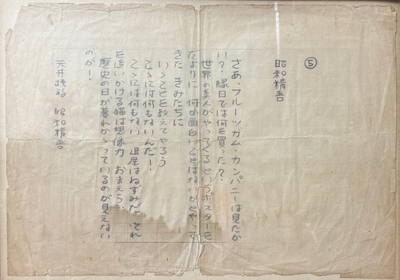 ⑤
昭和精吾
さあ、フルーツガム・カンパニーは見たか
い?・縁日では何を買った?・
世界の美人がやってくるというポスターを
たよりに、何か面白いことはないかとやって
きた、きみたちに
いゝことを教えてやろう
こゝには何もないんだ!・
こゝには何もない 退屈はねずみだ、それ
を追いかける猫は想像力 おまえら、
歴史の日が暮れかゝっているのが見えない
のか!・
天井桟敷 昭和精吾